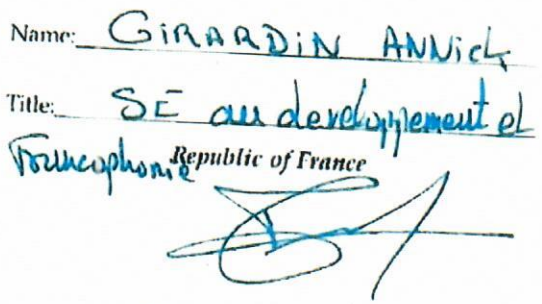 Name: GIRARDIN ANNick
Title: SE au developpement et
Francophonie Republic of France